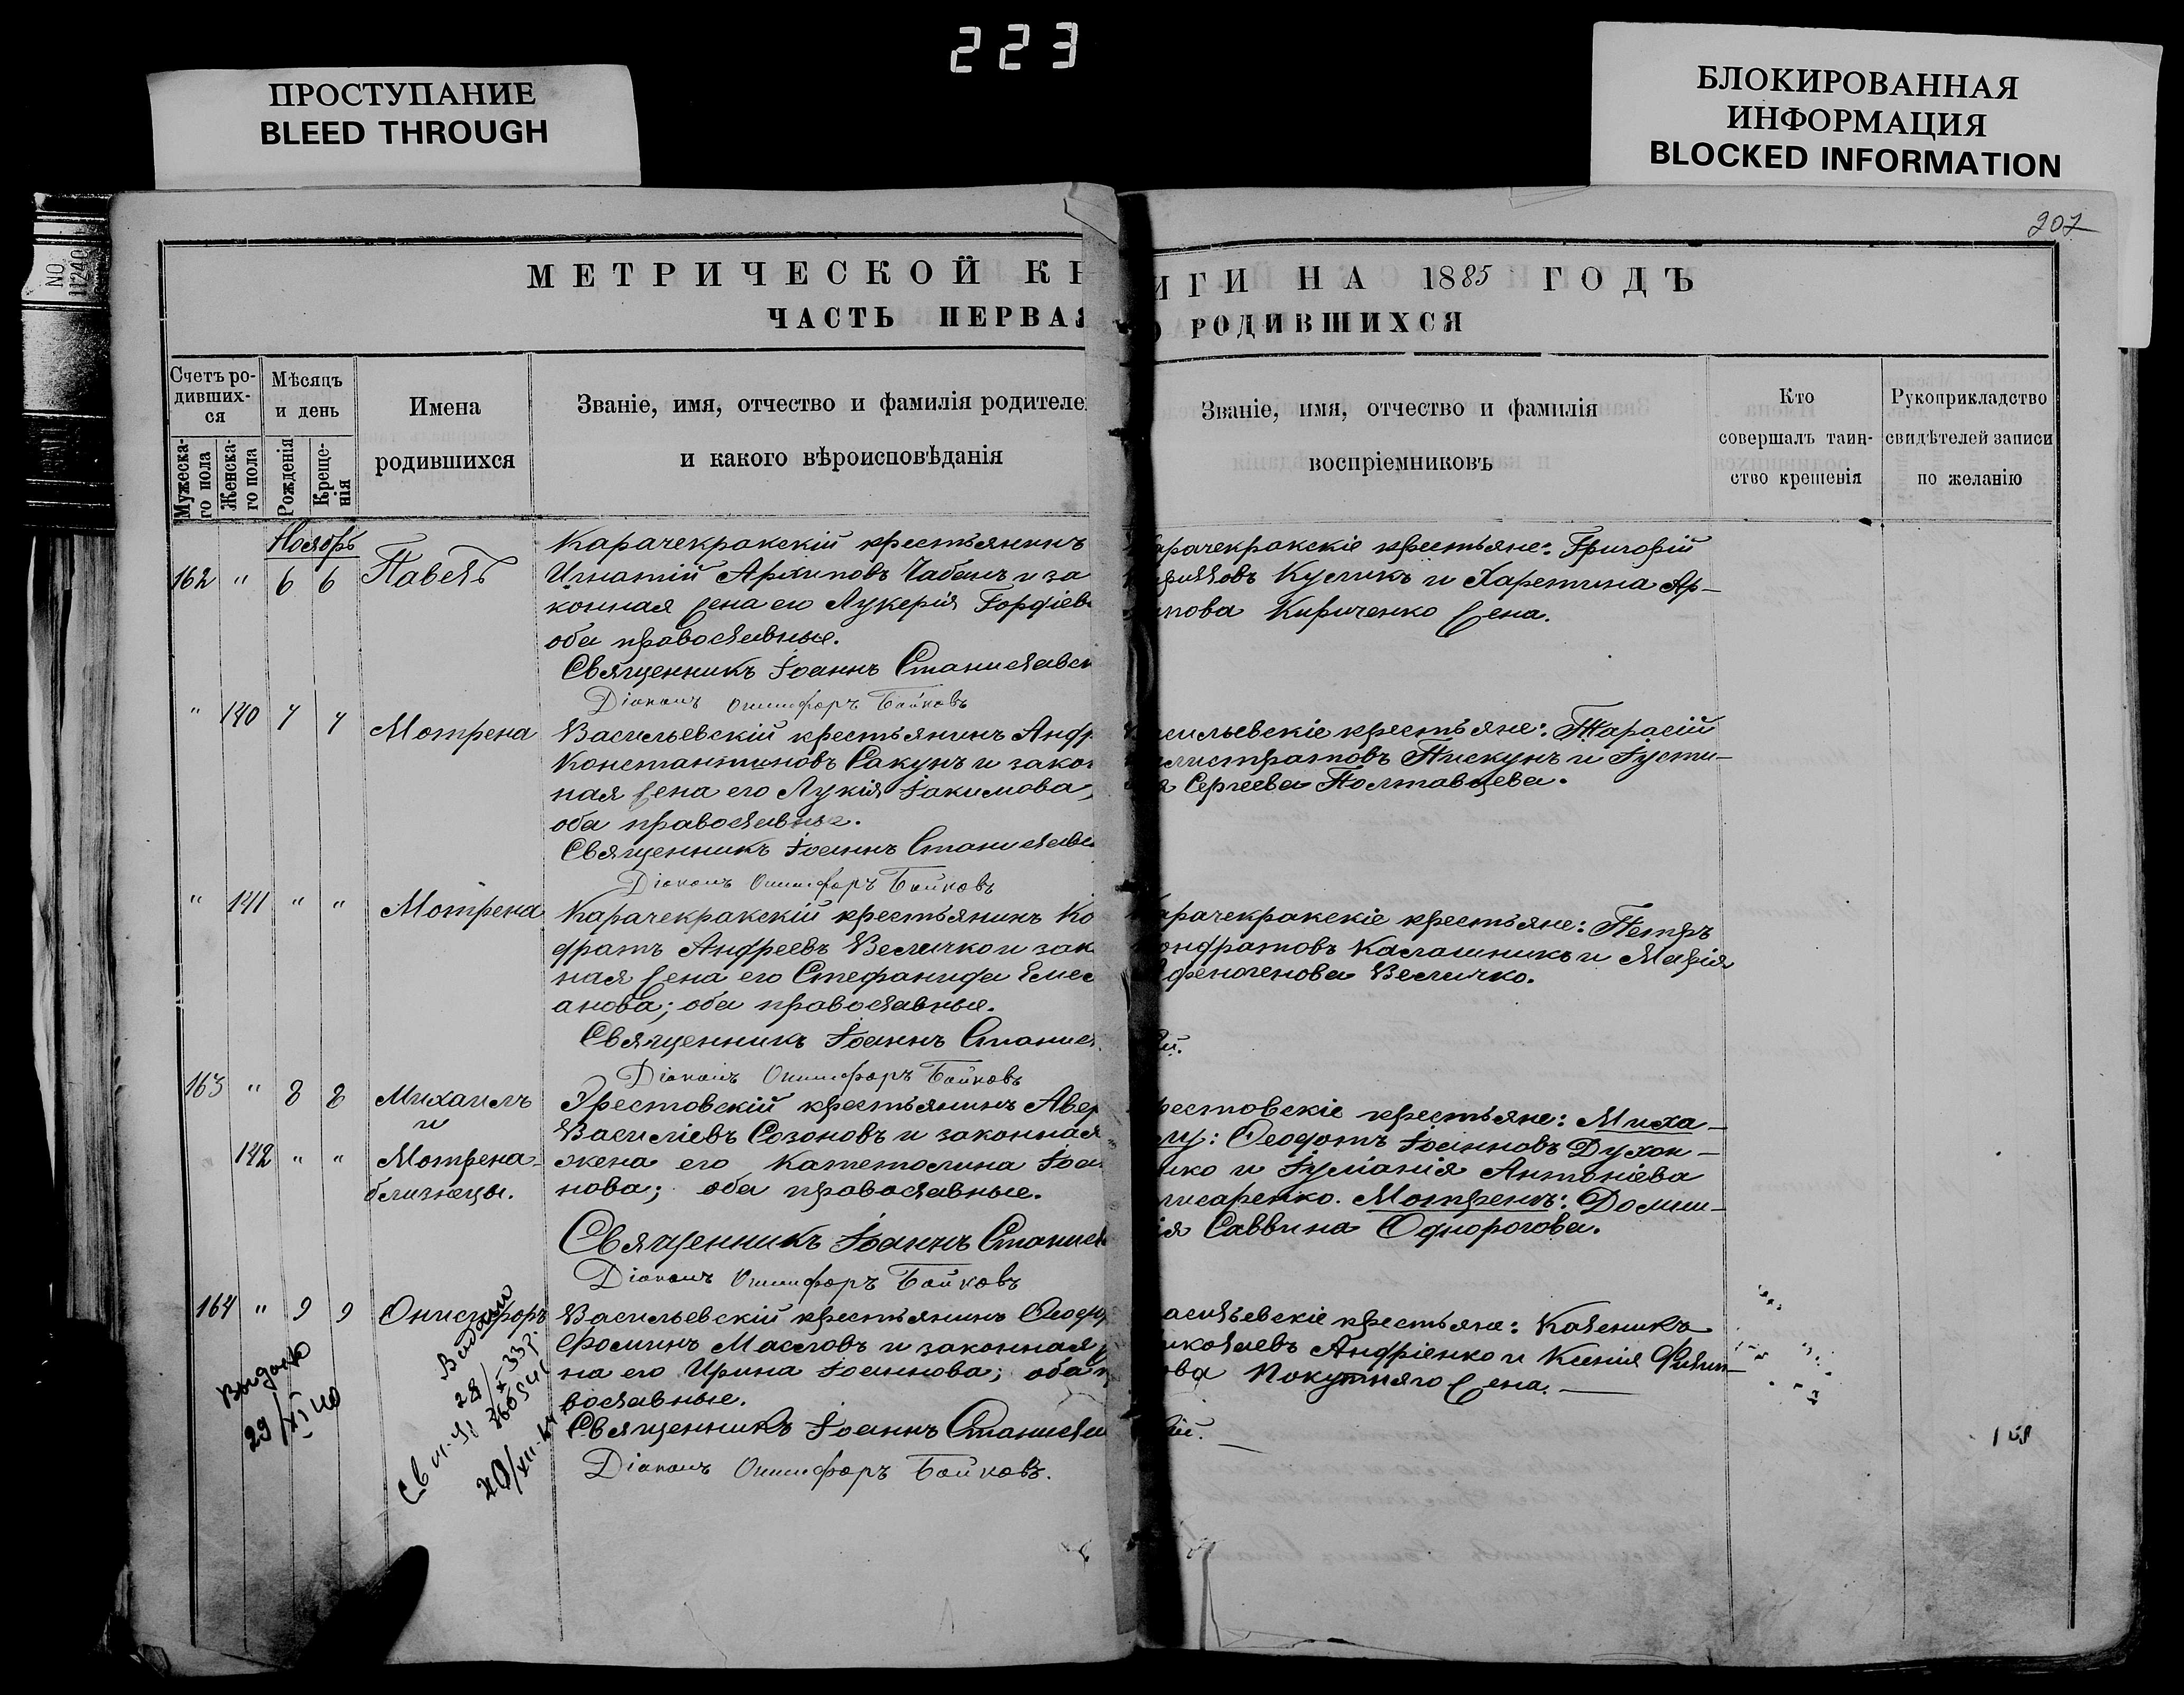 223
ПРОСТУПАНИЕ
BLEED THROUGH
БЛОКИРОВАННАЯ
ИНФОРМАЦИЯ
BLOCKED INFORMATION
NO
11240
207
МЕТРИЧЕСКОЙ КН
ИГИ НА 1885 ГОДЪ
ЧАСТЬ ПЕРВАЯ
О РОДИВШИХСЯ
Счетъ ро-
дивших-
ся
Мужеска-
го пола
Женска-
го пола
Мѣсяцъ
и день
Рожденія
Креще-
нія
Имена
родившихся
Званіе, имя, отчество и фамилія родителе
и какого вѣроисповѣданія
Званіе, имя, отчество и фамилія
воспріемниковъ
Кто
совершалъ таин-
ство крещенія
Рукоприкладство
свидѣтелей записи
по желанію
Ноябрь
162 " 6 6 Павелъ
Карачекракскій крестьянинъ
Игнатій Архиповъ Чабанъ и за
конная жена его Лукерія Гордіев
оба православные.
Священникъ Іоаннъ Станиславск
Діаконъ Онисифоръ Байковъ
арачекракскіе крестьяне: Григорій
Куликъ и Харитина Ар-
ипова Кириченко жена.
" 140 7 7 Мотрена
Васильевскій крестьянинъ Андр
Константиновъ Сакунъ и закон
ная жена его Лукія Іакимова,
оба православные.
Священникъ Іоаннъ Станиславс
Діаконъ Онисифоръ Байковъ
сильевскіе крестьяне: Тарасій
листратовъ Пискунъ и Іусти-
я Сергеева Полтавцева.
" 141 " " Мотрена
Карачекракскій крестьянинъ Ко
дратъ Андреевъ Величко и зак
ная жена его Стефанида Емел
анова; оба православные.
Священникъ Іоаннъ Станисл
Діаконъ Онисифоръ Байковъ
арачекракскіе крестьяне: Петръ
ондратовъ Калашникъ и Марія
феногенова Величко.
ій.
163 " 8 8 Михаилъ
и
142 " " Мотрена-
близнецы.
Эрестовскій крестьянинъ Авер
Василіевъ Созоновъ и законная
жена его Катетолина Іоан
нова; оба православные.
Священникъ Іоаннъ Станисл
Діаконъ Онисифоръ Байковъ
рестовскіе крестьяне: Миха-
лу: Ѳеодотъ Іоанновъ Духон-
ико и Іуліанія Антоніева
лисаренко. Мотренъ: Домни-
ія Саввина Однорогова.
164 " 9 9 Онисифоръ
Васильевскій крестьянинъ Ѳеодо
Ѳоминъ Масловъ и законная ж
на его Ирина Іоаннова; оба п
вославные.
Священникъ Іоаннъ Станислав
Діаконъ Онисифоръ Байковъ.
асильевскіе крестьяне: Каленикъ
иколаевъ Андріенко и Ксенія Филип-
ова Покутняго жена.
ій.
Выдано
29/XI 40
Видано
28/X-33 р.
20/XII-44